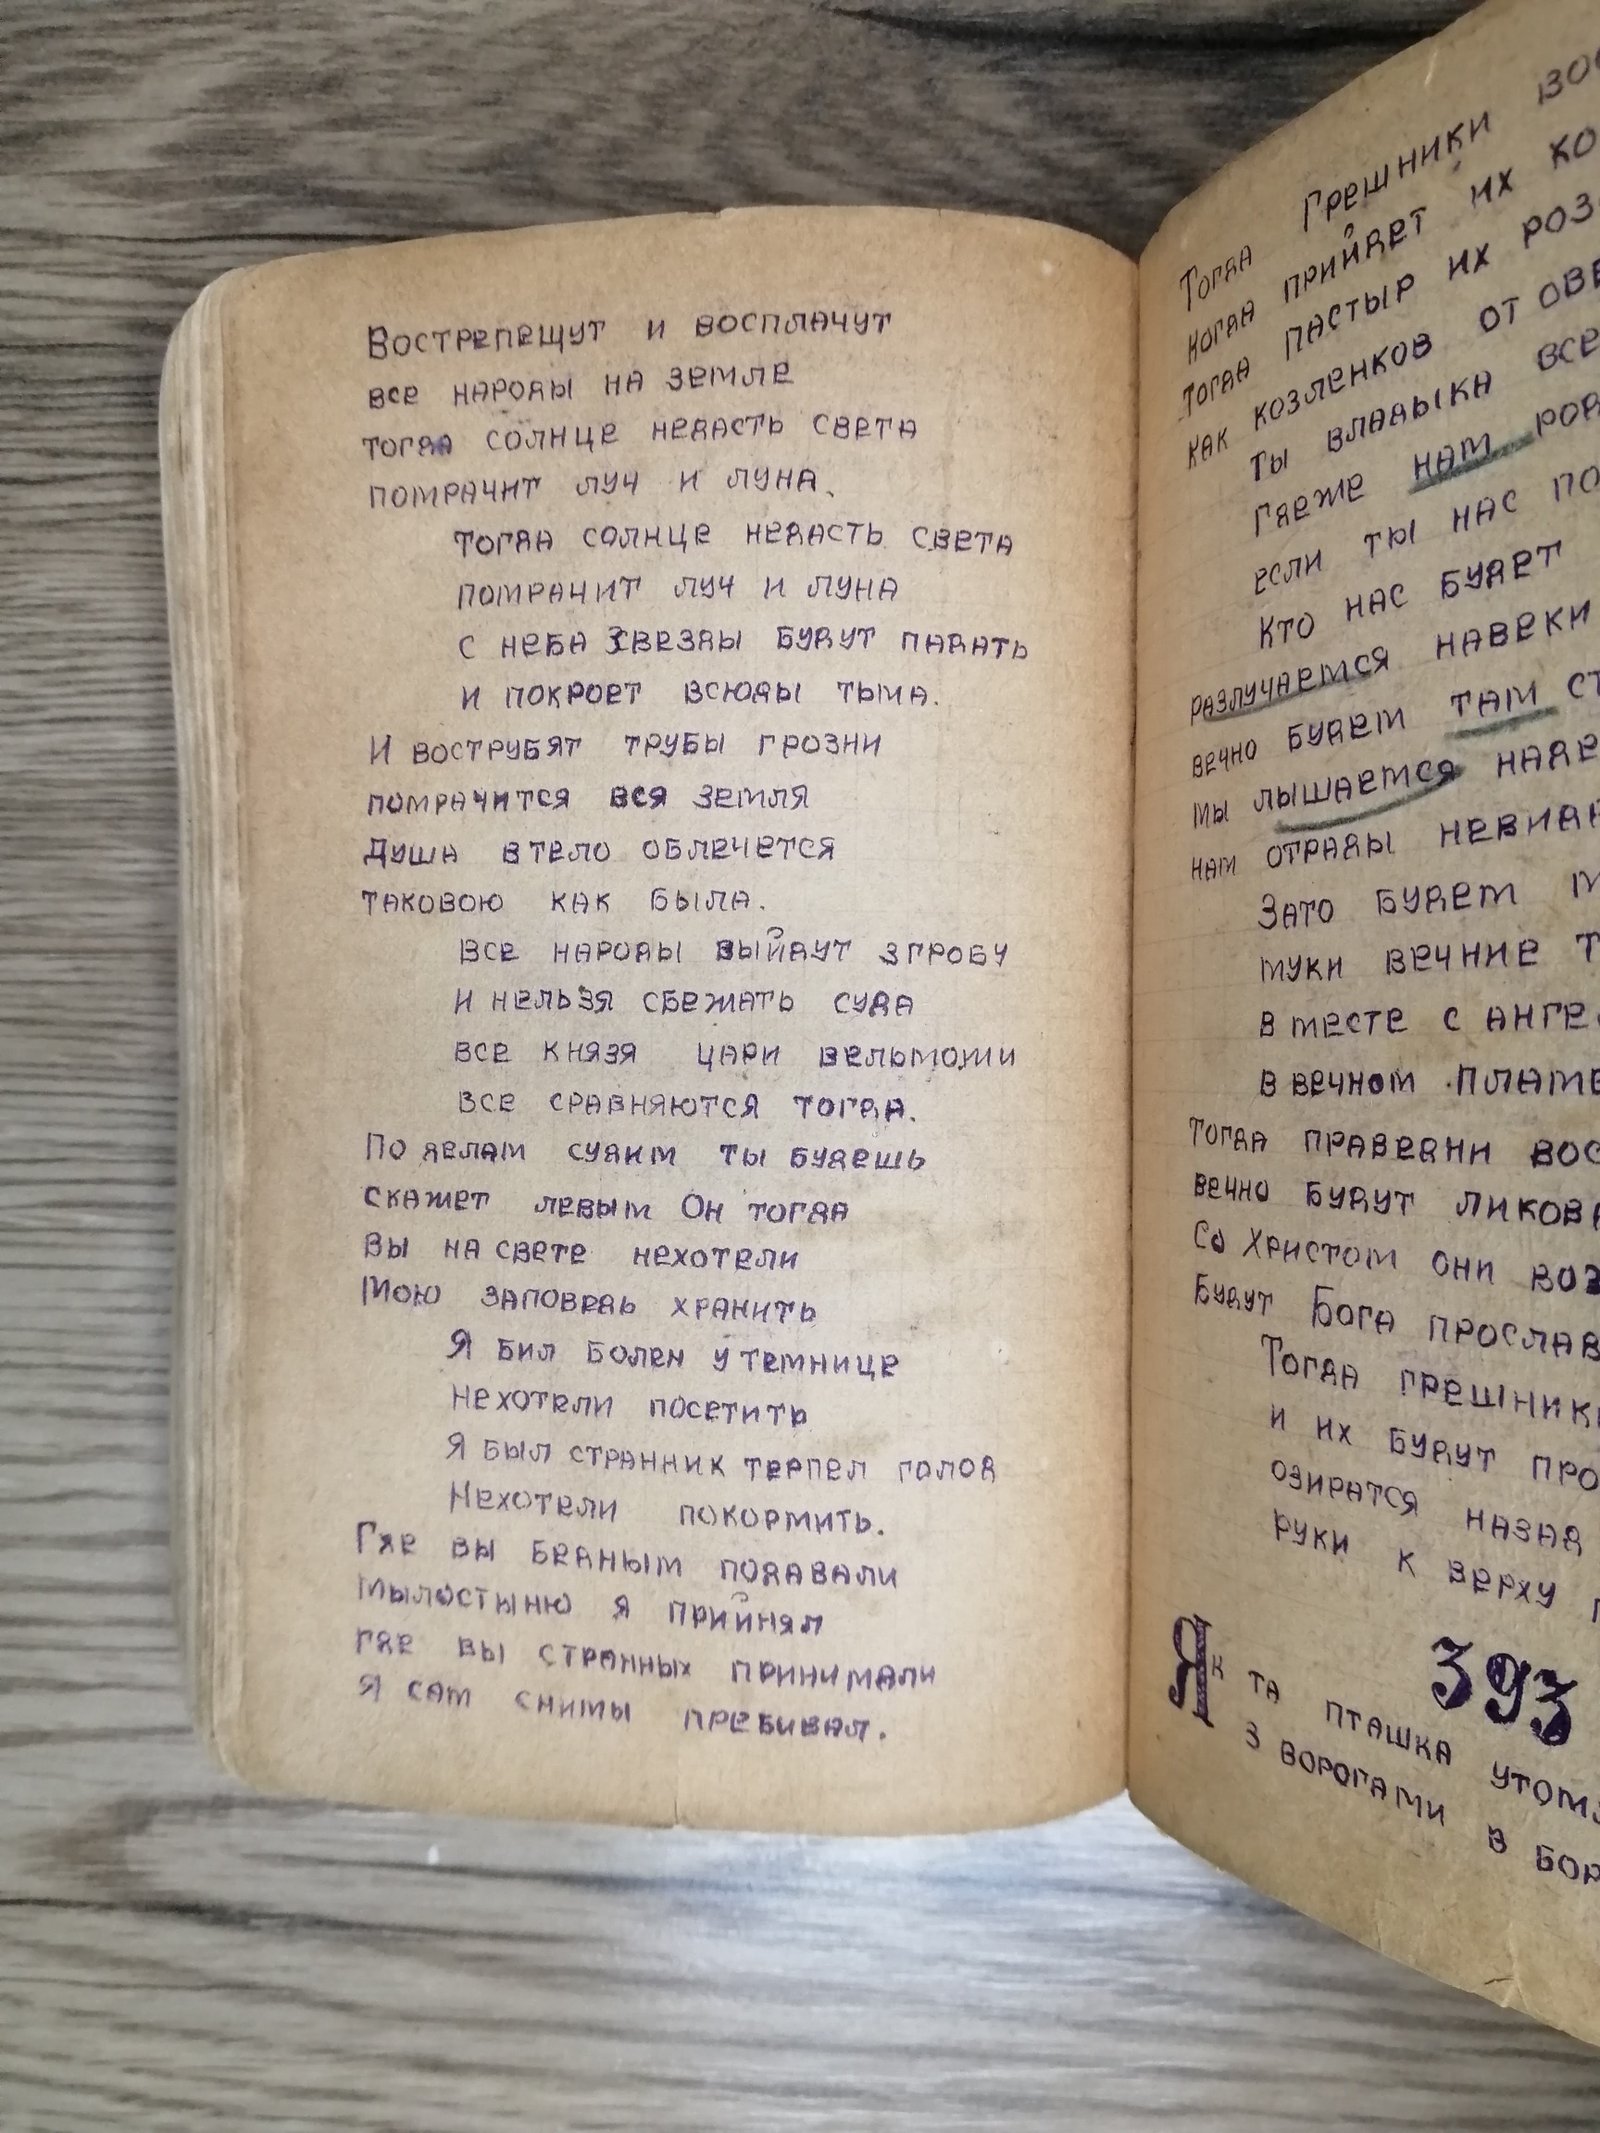 Вострепещут и восплачут
все народы на земле
тогда солнце недасть света
помрачит луч и луна.
тогда солнце недасть света
помрачит луч и луна
с неба звезды будут падать
и покроет всюды тьма.
И вострубят трубы грозни
помрачится вся земля
Душа втело облечется
таковою как была.
Все народы выйдут згробу
и нельзя сбежать суда
все князя цари вельможи
все сравняются тогда.
По делам судим ты будешь
скажет левым Он тогда
Вы на свете нехотели
Мою заповедь хранить
Я бил болен утемнице
нехотели посетить
Я был странник терпел голод
Нехотели покормить.
Где вы бедным подавали
мылостыню я прийнял
где вы странных принимали
Я сам снимы пребивал.
Тогда Грешники
когда прийдет их
тогда пастыр их
как козленков от
Ты владыка все
Гдеже нам
если ты нас
Кто нас будет
разлучается навеки
вечно будем там
мы лышаемтся
нам отрады
Зато будем
муки вечние
вместе с
ввечном
тогда праведни
вечно будут
Со Христом они
Будут Бога
Тогда грешники
и их будут
озиратся назад
руки к верху
393
Як та пташка
з ворогами в